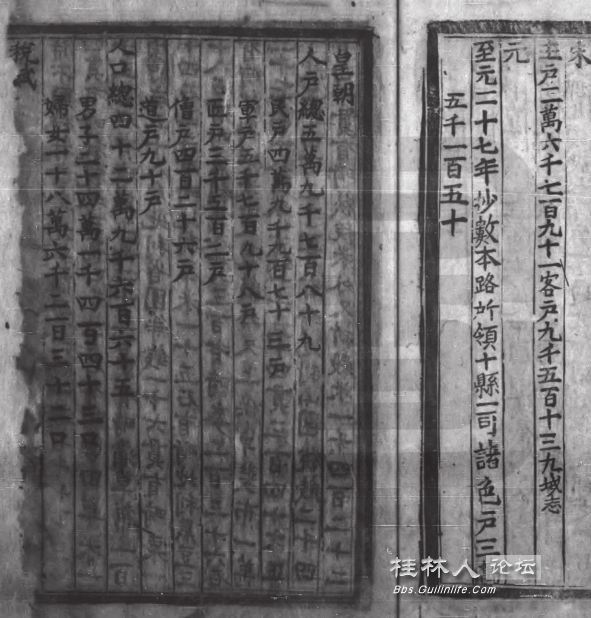 宋
主戶二萬六千七百九十一客戶九千五百十三九域志
元
至元二十七年抄數本路所領十縣一司諸色戶三
五千一百五十
皇朝
人戶總五萬九千七百八十九
民戶四萬九千九百七十三戶
軍戶五千七百九十八戶
匠戶三千五百二戶
僧戶四百二十六戶
道戶九十戶
人口總四十二萬九千六百六十五
男子二十四萬一千四百四十三口
婦女一十八萬六千二百三十二口
桂林人论坛
Bbs.Guilinlife.Com